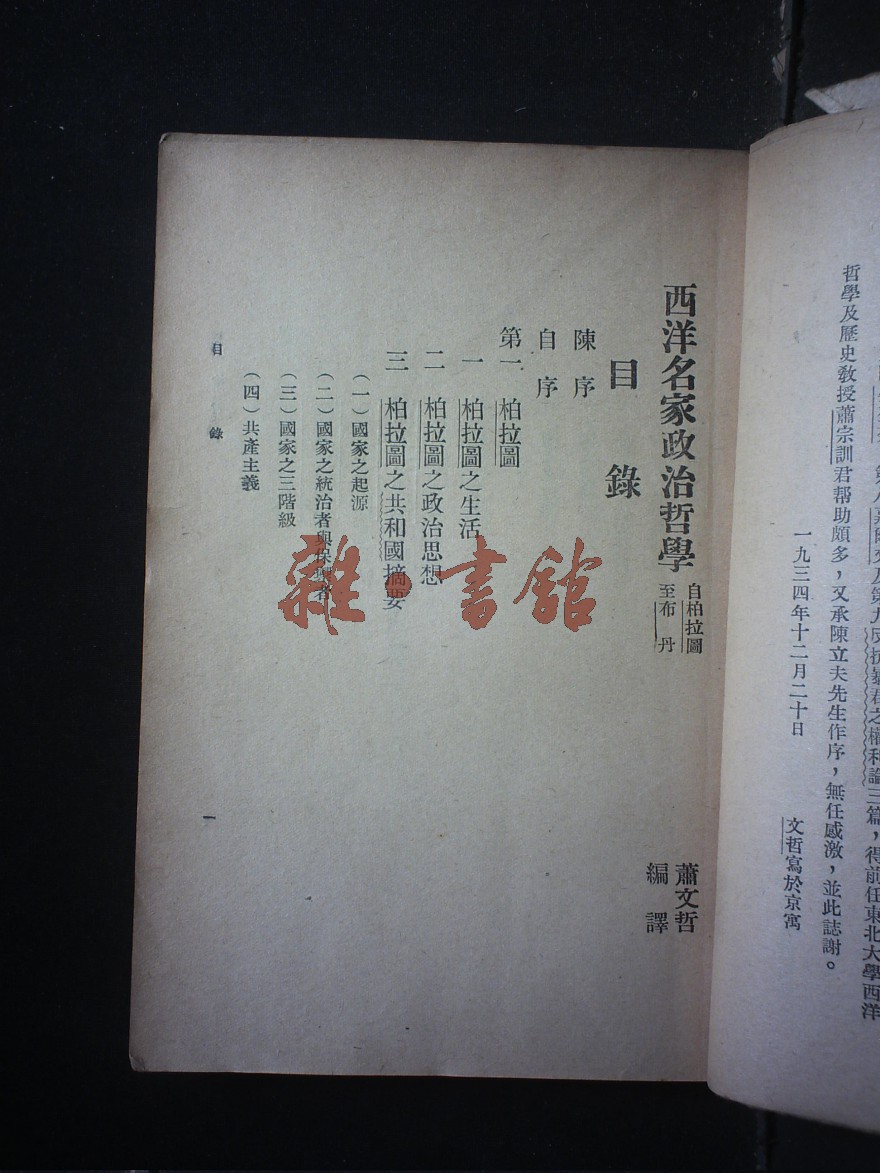 哲學及歷史教授蕭宗訓君帮助頗多，又承陳立夫先生作序，無任感激，並此誌謝。
一九三四年十二月二十日
文哲寫於京寓
西洋名家政治哲學
自柏拉圖
至布丹
蕭文哲
編譯
目錄
陳序
自序
第一 柏拉圖
一 柏拉圖之生活
二 柏拉圖之政治思想
三 柏拉圖之共和國摘要
（一）國家之起源
（二）國家之統治者與保衛者
（三）國家之三階級
（四）共產主義
目錄
一
雜·書館